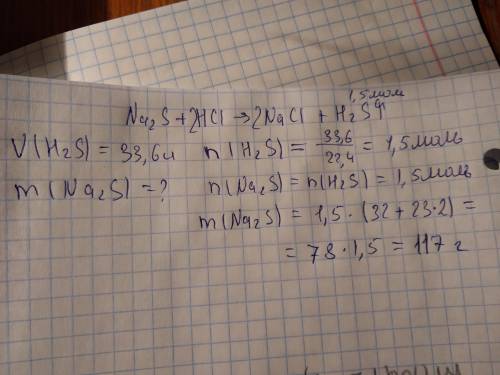 1,5моль
Na₂S + 2HCl → 2NaCl + H₂S↑
V(H₂S) = 33,6л n(H₂S) = 33,6/22,4 = 1,5моль
m(Na₂S) = ? n(Na₂S) = n(H₂S) = 1,5моль
m(Na₂S) = 1,5 · (32 + 23 · 2) =
= 78 · 1,5 = 117 г